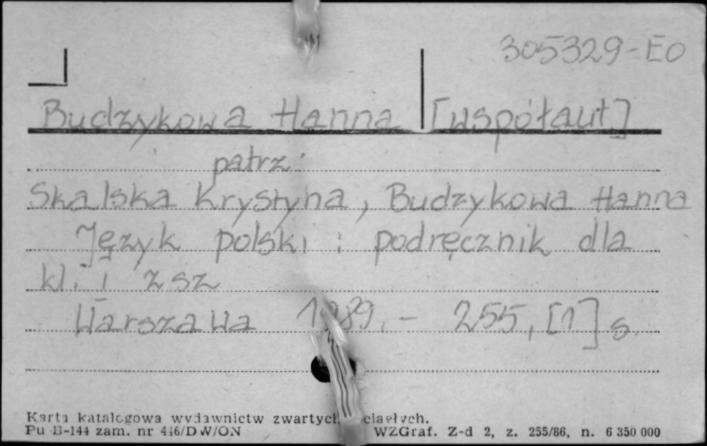 305329-EO
Budzykowa Hanna [współaut.]
patrz:
Skalska Krystyna, Budzykowa Hanna
Język polski : podręcznik dla
kl. i zsz
Warszawa 1989. - 255, [1] s.
Karta katalogowa wydawnictw zwartych ciągłych.
Pu B-144 zam. nr 446/DW/ON WZGraf. Z-d 2, z. 255/86, n. 6 350 000